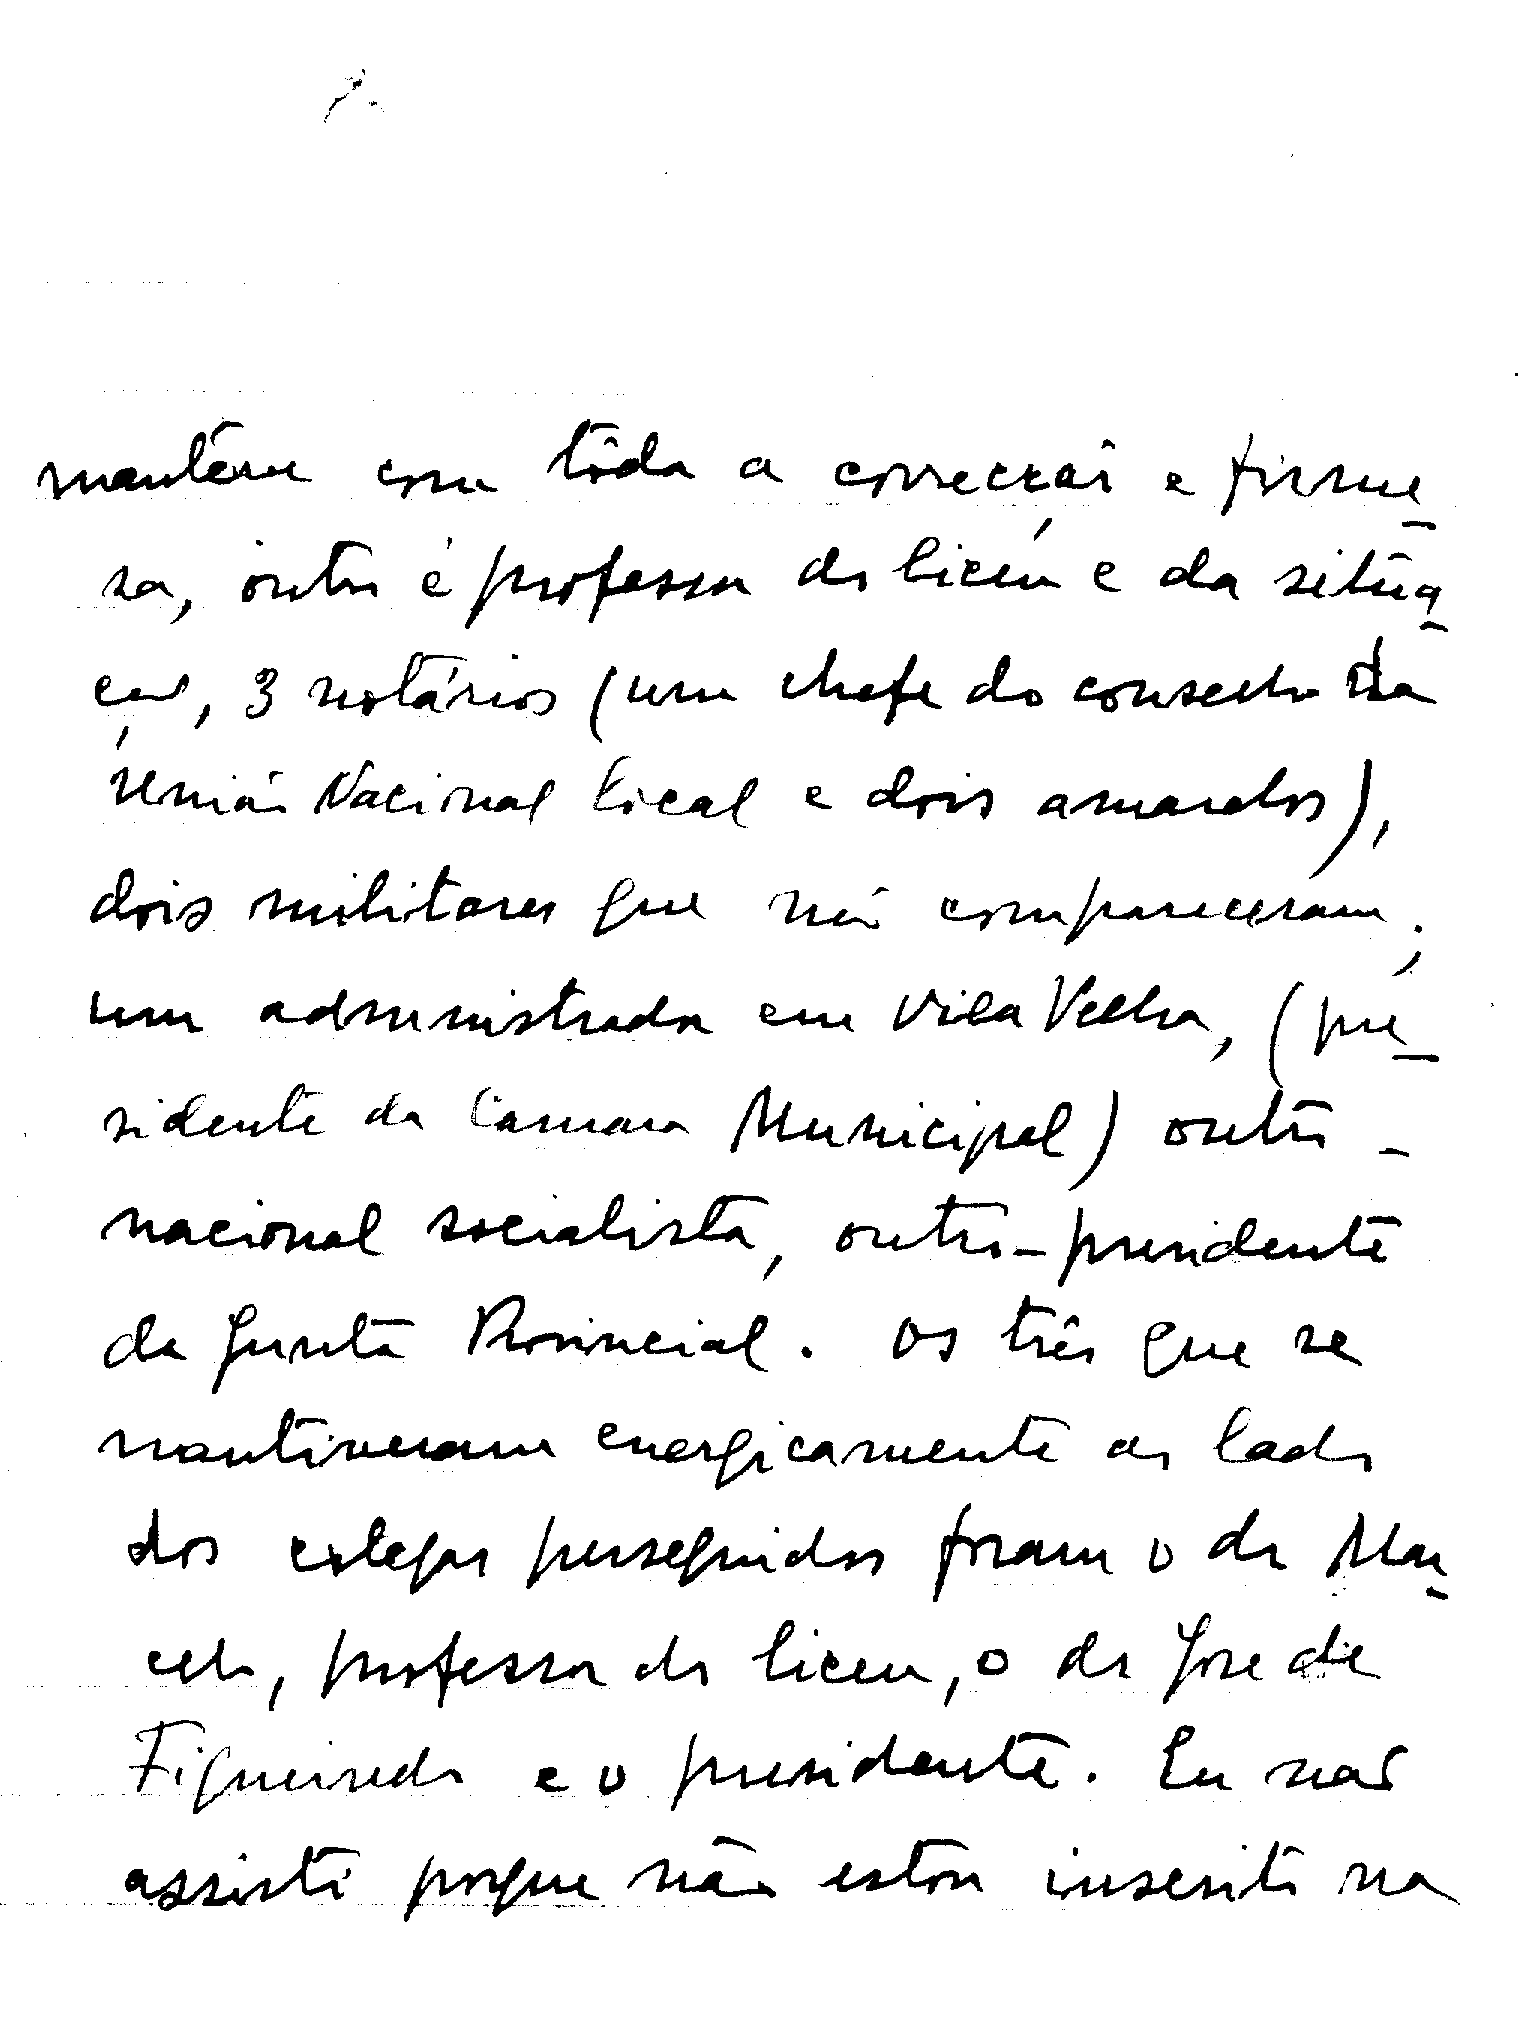 manteve com tôda a correcção e firme-
sa, outro é professor do liceu e da situa-
ção, 3 notários (um chefe do conselho da
União Nacional local e dois amarelos),
dois militares que não compareceram;
um administrador em Vila Velha, (pre-
sidente da Camara Municipal) outro -
nacional socialista, outro - presidente
da Junta Provincial. Os três que se
mantiveram energicamente ao lado
dos colegas perseguidos foram o dr Mar-
celo, professor do liceu, o dr José de
Figueiredo e o presidente. Eu não
assisti porque não estou inscrito na